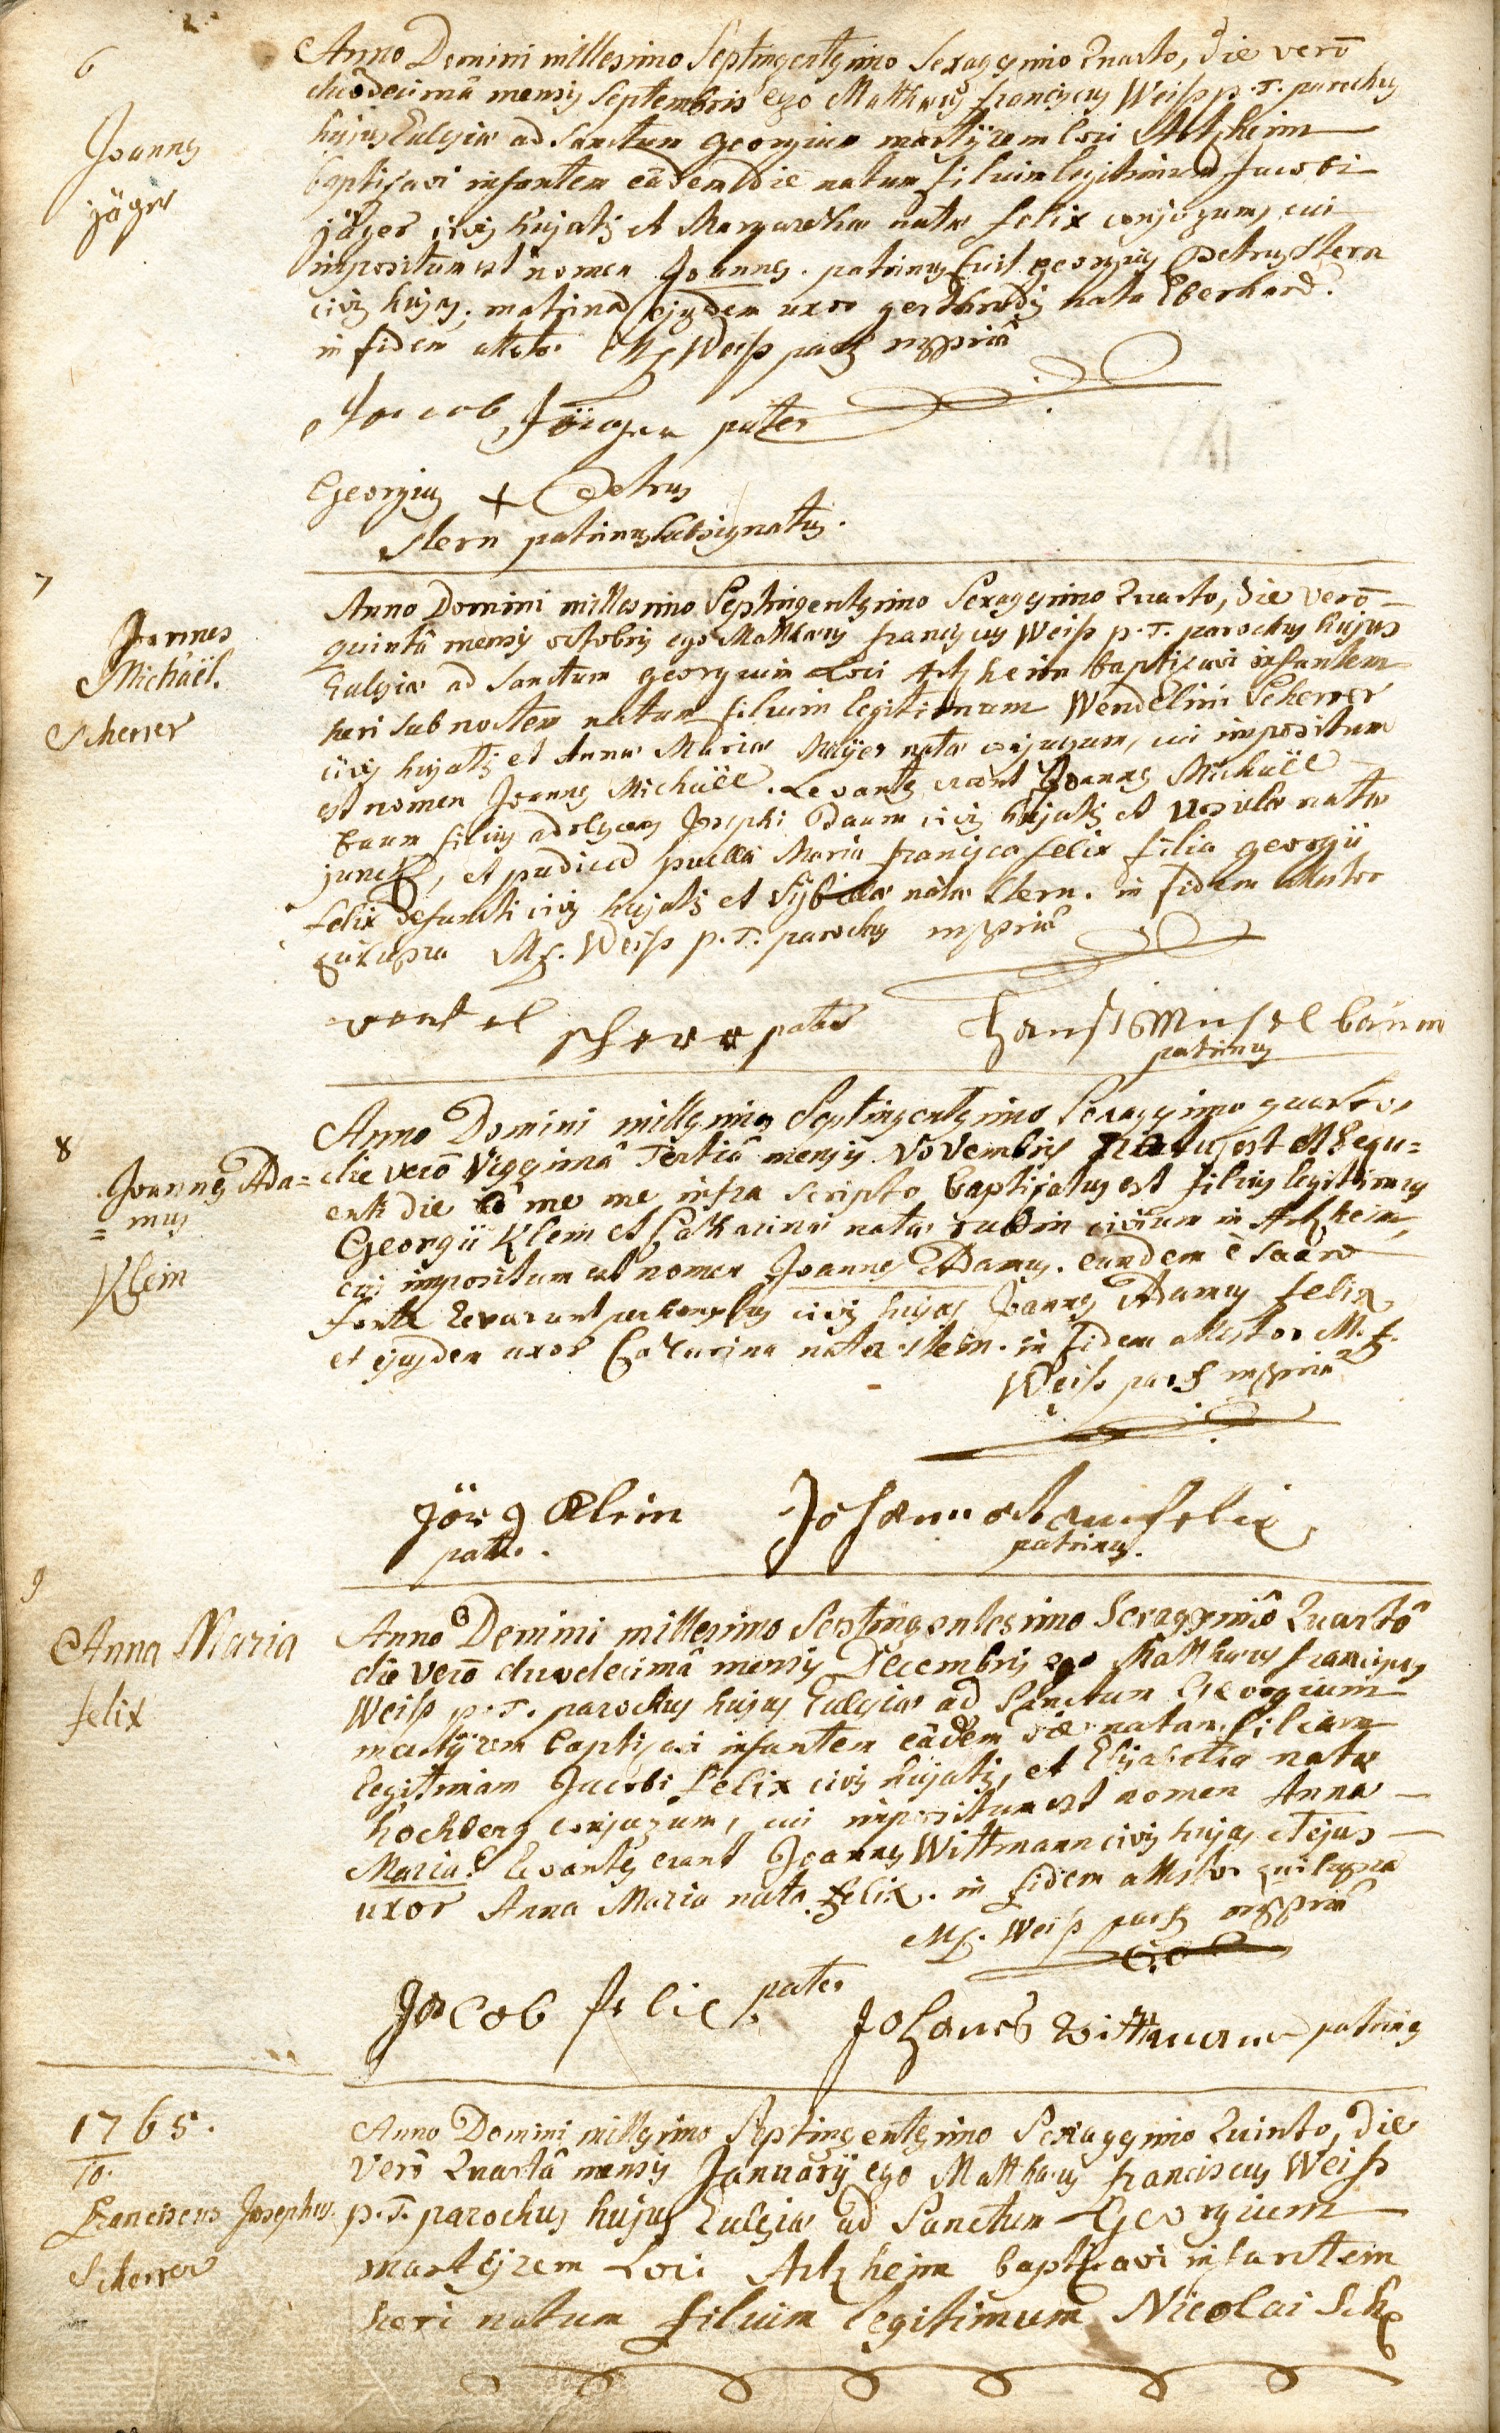 6
Joannes
jäger
Anno Domini millesimo Septingentesimo Sexagesimo Quarto, die verò
duodecimâ mensis Septembris ego Matthæus franciscus Weiss p.T. parochus
hujus Ecclesiæ ad Sanctum georgium martÿrem loci Artzheim
baptisavi infantem eâdem die natum filium legitimum Jacobi
jäger civis hujatis et Margarethæ natæ felix conjugum, cui
impositum est nomen Joannes. patrinus fuit georgius Petrus Stern
civis hujas, matrina ejusdem uxor gerthrudis nata Eberhard.
in fidem attestor Mf Weiss par mppriâ
Jacob Jäger pater
Georgius + Petrus
Stern patrinus subsignatus.
7
Joannes
Michaël.
Scherrer
Anno Domini millesimo Septingentesimo Sexagesimo Quarto, die verò
quintâ mensis octobris ego Matthæus franciscus Weiss p.T. parochus hujus
Ecclesiæ ad Sanctum georgium Loci Artzheim baptizavi infantem
heri sub noctem natum filium legitimum Wendelini Scherrer
civis hujatis et Annæ Mariæ Meÿer natæ conjugum, cui impositum
est nomen Joannes Michaël. Levantes erant Joannes Michaël
baum filius adolescens Josephi Baum civis hujatis et Ursulæ natæ
junck, et pudica puella Maria francisca felix filia georgii
felix defuncti civis hujatis et Sÿbillæ natæ Stern. in fidem attestor
qui supra Mf. Weiss p.T. parochus mppriâ
wentel scherr pater Hans Michel baum
patrinus
8
Joannes Ada=
=mus
Klein
Anno Domini millesimo Septingentesimo Sexagesimo quarto,
die verò Vigesimâ Tertiâ mensis Novembris natus est et sequ=
enti die à me me infra scripto baptisatus est filius legitimus
Georgii Klein et Catharinæ natæ rubin civium in Artzheim,
cui impositum est nomen Joannes Adamus. eundem è sacro
fonte levarunt civis hujas Joannes Adamus felix
et ejusdem uxor Catarina nata Stern. in fidem attestor M.f.
Weiss par mppriâ
Jörg Klein Johann adam felix
pater. patrinus.
9
Anna Maria
felix
Anno Domini millesimo Septingentesimo Sexagesimô Quartô
die verò duodecimâ mensis Decembris ego Matthæus franciscus
Weiss p.T. parochus hujus Ecclesiæ ad Sanctum Georgium
martÿrem baptisavi infantem eâdem die natam filiam
legitimam Jacobi Felix civis hujatis, et Elisabetha natæ
hochberg conjugum, cui impositum est nomen Anna
Maria. Levantes erant Joannes Wittmann civis hujas et ejus
uxor Anna Maria nata felix. in fidem attestor qui supra
Mf. Weiss par mppriâ
Jacob felix pater
Johanes Wittmann patrinus
1765.
10.
Franciscus Josephus
Scherrer
Anno Domini millesimo Septingentesimo Sexagesimo Quinto, die
verò Quartâ mensis Januarÿ ego Matthæus franciscus Weiss
p.T. parochus hujus Ecclesiæ ad Sanctum Georgium
martÿrem Loci Artzheim baptizavi infantem
heri natum filium legitimum Nicolai Sch